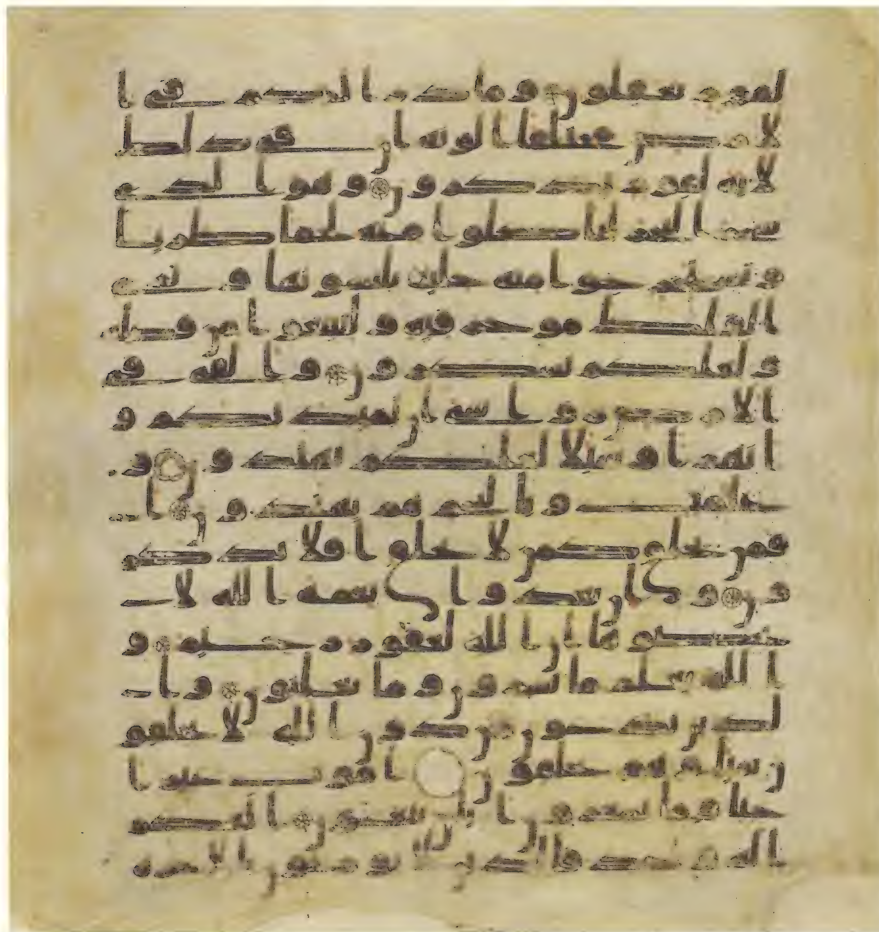 لقوم يعقلون وما ذرا لكم في ا
لارض مختلفا الونه ان في ذلك
لاية لقوم يذكرون وهو الذي
سخر البحر لتاكلوا منه لحما طريا
وتستخرجوا منه حلية تلبسونها وترى
الفلك موخر فيه ولتبتغوا من فضله
ولعلكم تشكرون والقى في
الارض روسي ان تميد بكم و
انهرا وسبلا لعلكم تهتدون و
علمت وبالنجم هم يهتدون ا
فمن يخلق كمن لا يخلق افلا تذكر
ون وان تعدوا نعمة الله لا
تحصوها ان الله لغفور رحيم و
الله يعلم ما تسرون وما تعلنون وا
لذين يدعون من دون الله لا يخلقو
ن شيا وهم يخلقون اموت غير ا
حيا وما يشعرون ايان يبعثون الهكم
اله وحد فالذين لا يومنون بالاخرة